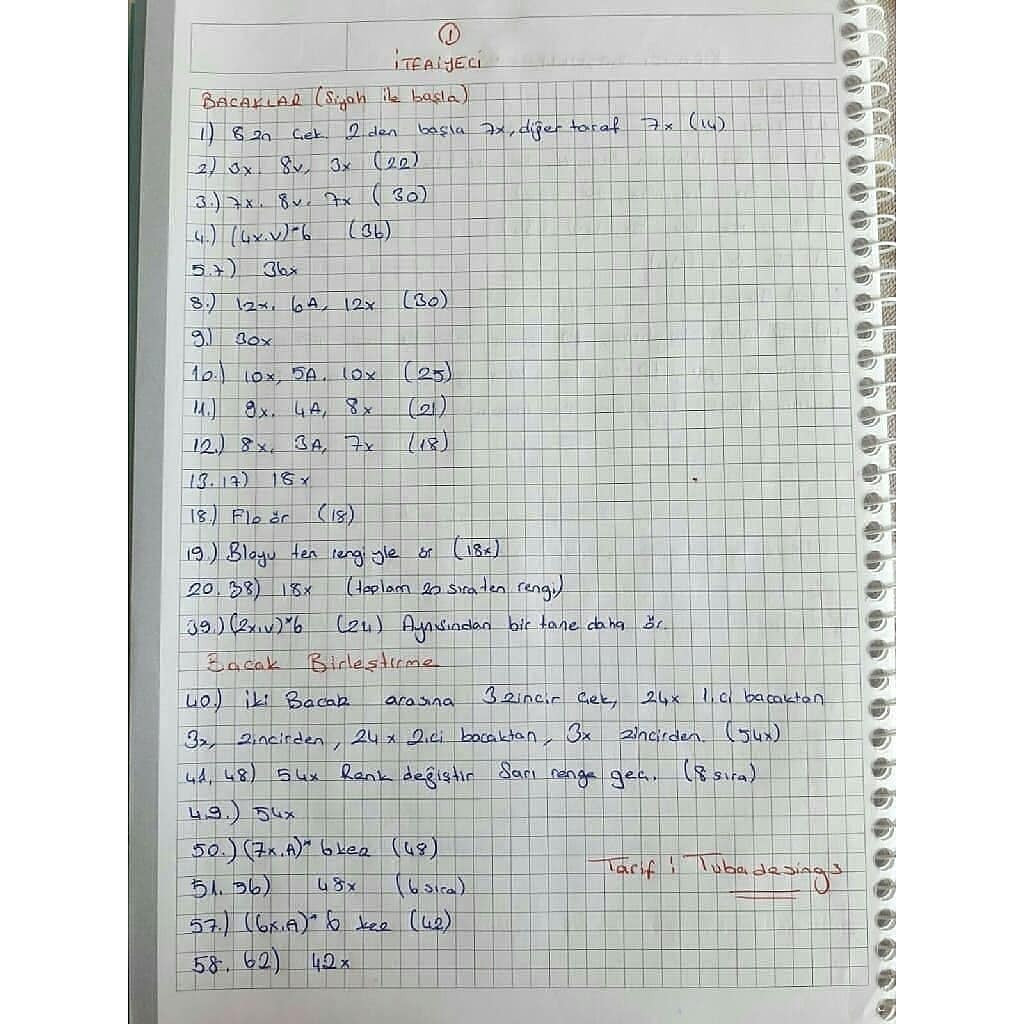 1
İTFAİYECİ
BACAKLAR (Siyah ile başla)
1) 8 zn çek. 2 den başla 7x, diğer taraf 7x (14)
2) 3x. 8v, 3x (22)
3.) 7x. 8v. 7x (30)
4.) (4x.v)*6 (36)
5.7) 36x
8.) 12x. 6A, 12x (30)
9.) 30x
10.) 10x, 5A. 10x (25)
11.) 9x. 4A, 8x (21)
12.) 8x. 3A, 7x (18)
13.17) 18x
18.) Flo ör (18)
19.) Bloyu ten rengiyle ör (18x)
20.38) 18x (toplam 20 sıra ten rengi)
39.) (2x.v)*6 (24) Aynısından bir tane daha ör.
Bacak Birleştirme
40.) iki Bacak arasına 3 zincir çek, 24x 1.ci bacaktan
3x, zincirden, 24x 2.ci bacaktan, 3x zincirden. (54x)
41, 48) 54x Renk değiştir Sarı renge geç. (8 sıra)
49.) 54x
50.) (7x.A)* 6 kez (48)
51. 56) 48x (6 sıra)
Tarif: Tubadesings
57.) (6x.A)* 6 kez (42)
58. 62) 42x